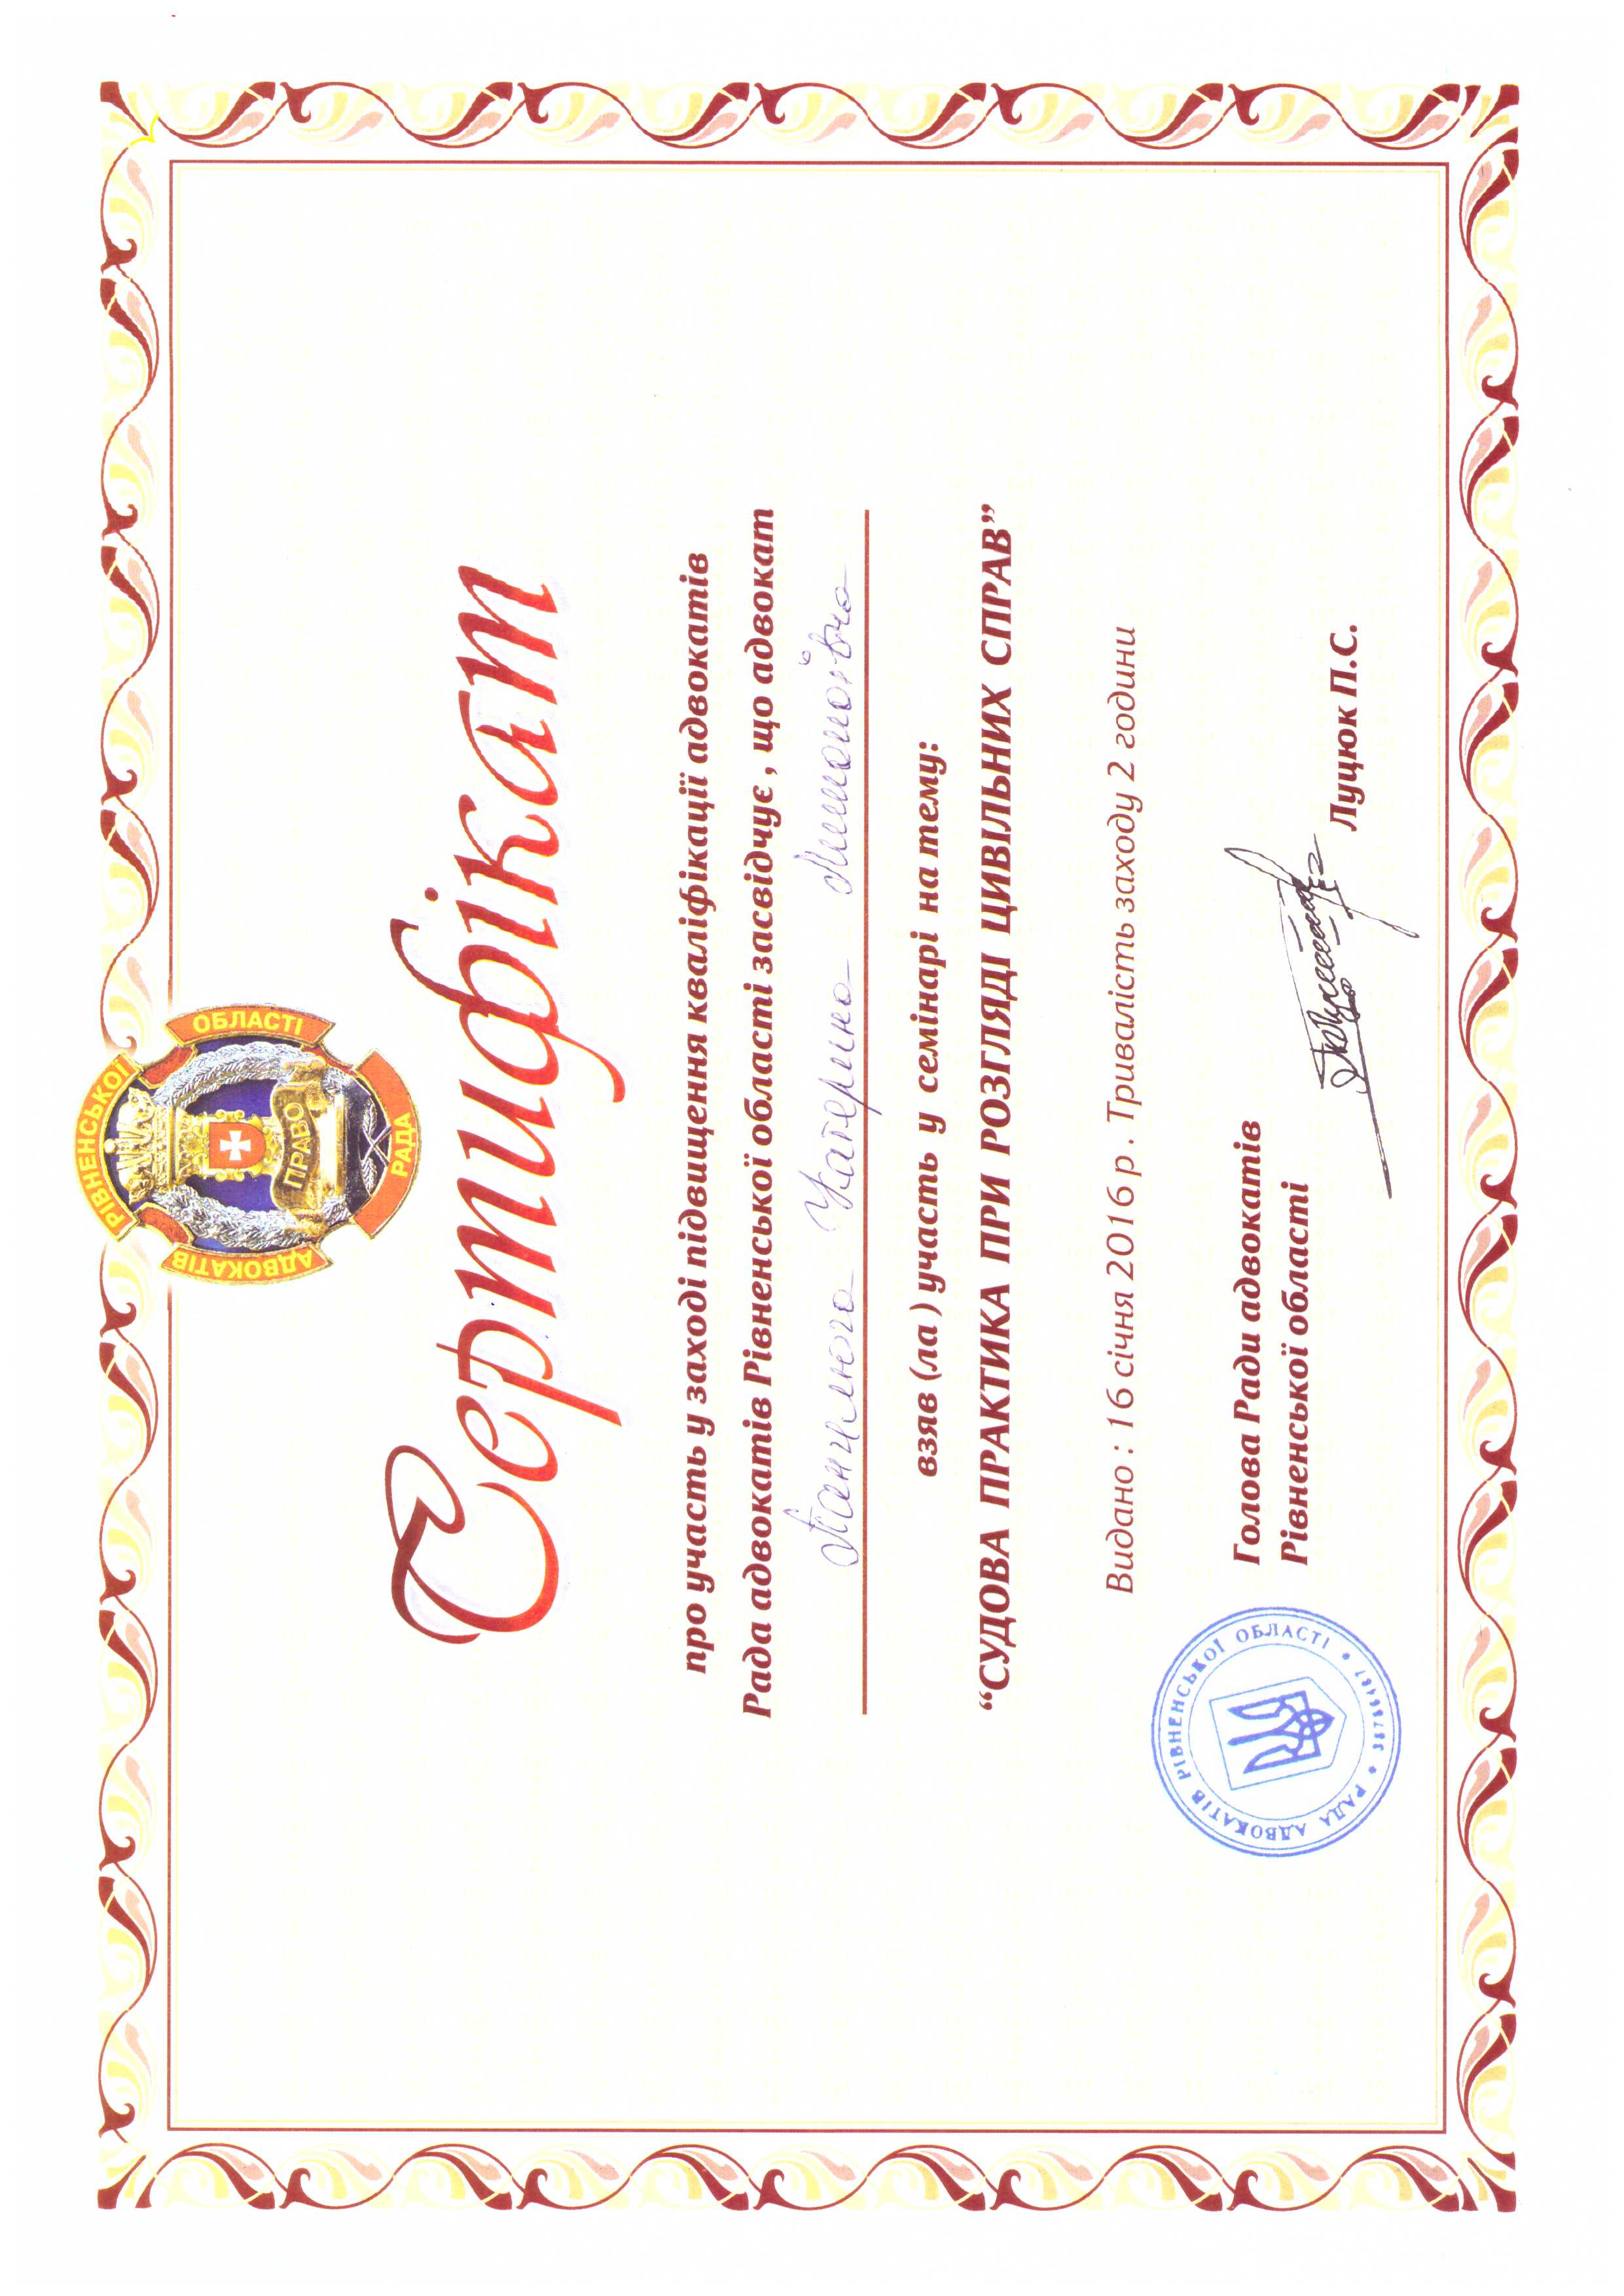 РАДА АДВОКАТІВ РІВНЕНСЬКОЇ ОБЛАСТІ
ПРАВО
Сертифікат
про участь у заході підвищення кваліфікації адвокатів
Рада адвокатів Рівненської області засвідчує , що адвокат
Катерина
взяв (ла ) участь у семінарі на тему:
“СУДОВА ПРАКТИКА ПРИ РОЗГЛЯДІ ЦИВІЛЬНИХ СПРАВ”
Видано : 16 січня 2016 р . Тривалість заходу 2 години
РАДА АДВОКАТІВ РІВНЕНСЬКОЇ ОБЛАСТІ
Голова Ради адвокатів
Рівненської області
Луцюк П.С.